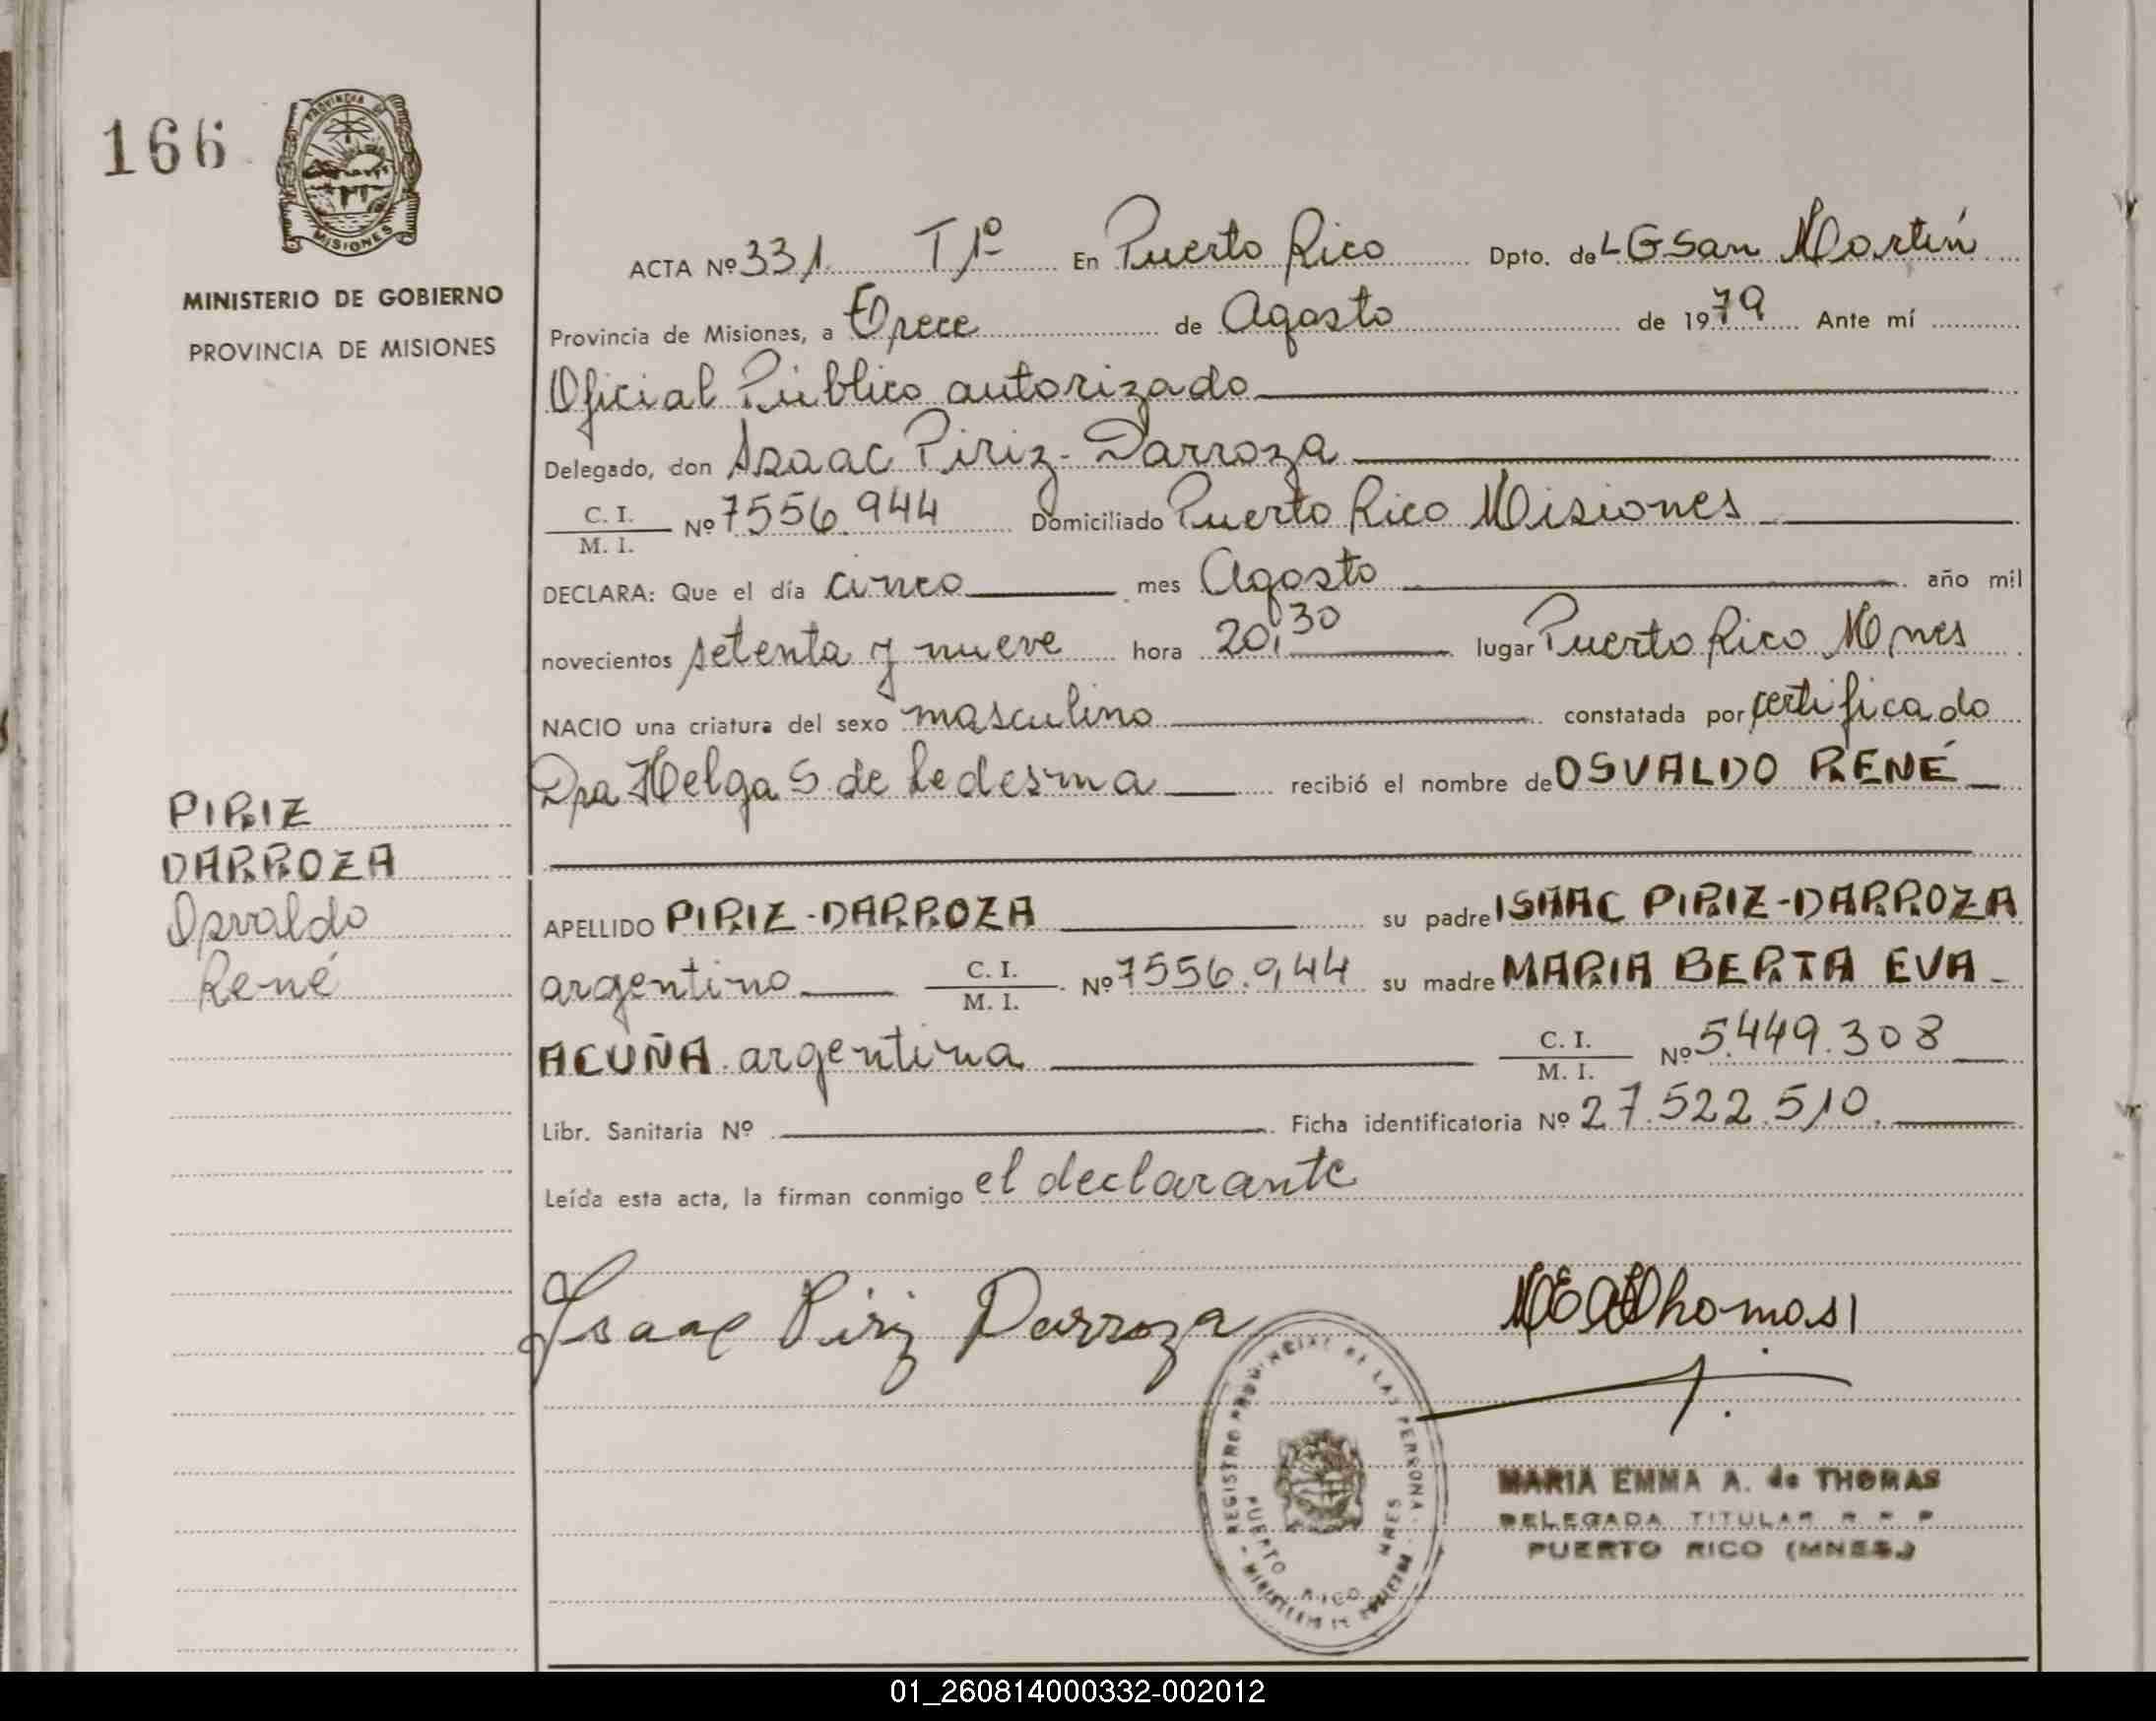 166
PROVINCIA DE
MISIONES
MINISTERIO DE GOBIERNO
PROVINCIA DE MISIONES
PIRIZ
DARROZA
Osvaldo
René
ACTA Nº 331 T1º En Puerto Rico Dpto. de LGSan Martín
Provincia de Misiones, a trece de Agosto de 1979 Ante mí
Oficial Público autorizado
Delegado, don Isaac Piriz-Darroza
C. I.
M. I. Nº 7556.944 Domiciliado Puerto Rico Misiones
DECLARA: Que el día cinco mes Agosto año mil
novecientos setenta y nueve hora 20,30 lugar Puerto Rico Mnes
NACIO una criatura del sexo masculino constatada por certificado
Dra Helga S. de Ledesma recibió el nombre de OSVALDO RENÉ
APELLIDO PIRIZ-DARROZA su padre ISAAC PIRIZ-DARROZA
argentino C. I.
M. I. Nº 7556.944 su madre MARIA BERTA EVA
ACUÑA argentina C. I.
M. I. Nº 5.449.308
Libr. Sanitaria Nº Ficha identificatoria Nº 27.522.510.
Leída esta acta, la firman conmigo el declarante
Isaac Piriz Darroza
Thomas
REGISTRO PROVINCIAL DE LAS PERSONAS
PUERTO RICO MNES
MARIA EMMA A. de THOMAS
DELEGADA TITULAR R P P
PUERTO RICO (MNES.)
01_260814000332-002012